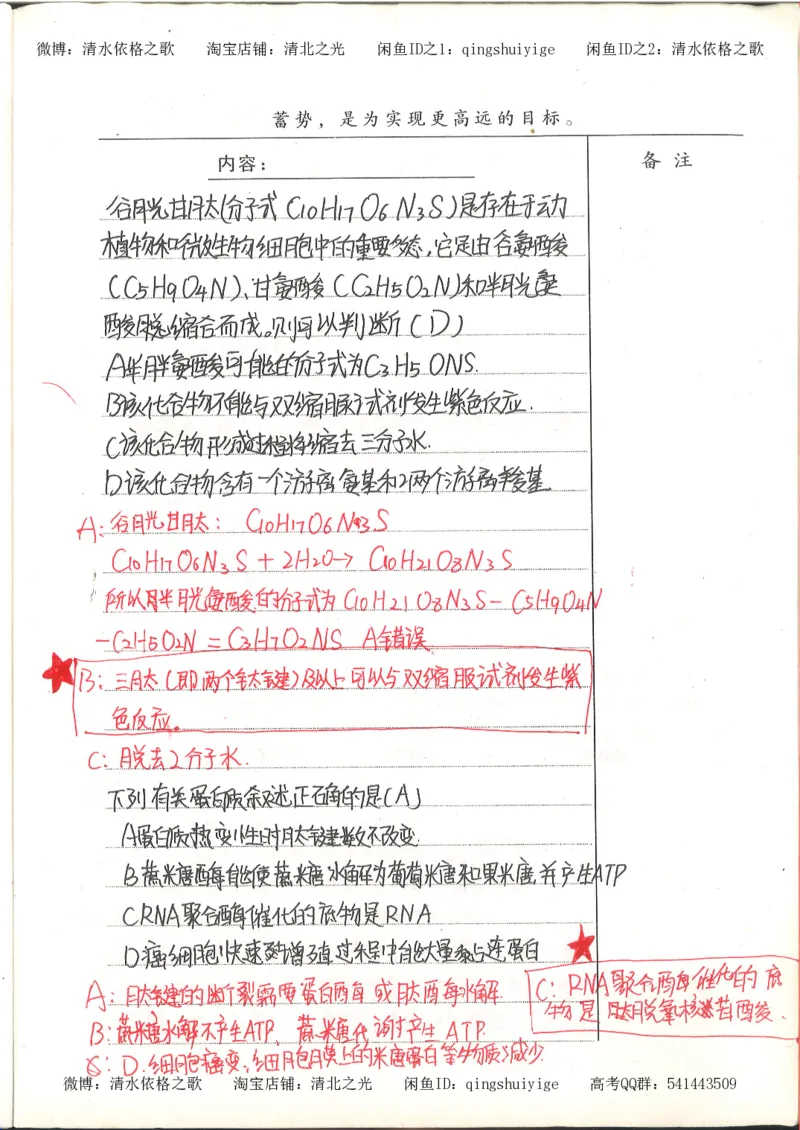 微博：清水依格之歌 淘宝店铺：清北之光 闲鱼ID之1：qingshuiyige 闲鱼ID之2：清水依格之歌
蓄势，是为实现更高远的目标。
内容：
备 注
谷胱甘肽(分子式C10H17O6N3S)是存在于动
植物和微生物细胞中的重要多态,它是由谷氨酸
(C5H9O4N)、甘氨酸(C2H5O2N)和半胱氨
酸脱水缩合而成。则可以判断(D)
A半胱氨酸可能的分子式为C3H5ONS.
B该化合物不能与双缩脲试剂发生紫色反应.
C该化合物形成过程将缩去三分子水.
D该化合物含有一个游离氨基和2两个游离羧基
A:谷胱甘肽: C10H17O6N3S
C10H17O6N3S+2H2O→ C10H21O8N3S
所以半胱氨酸的分子式为C10H21O8N3S-C5H9O4N
-C2H5O2N=C3H7O2NS A错误
B:三肽(即两个肽键)及以上可以与双缩脲试剂发生紫
色反应。
C:脱去2分子水.
下列有关蛋白质叙述正确的是(A)
A蛋白质热变性时肽键数不改变.
B蔗糖酶能使蔗糖水解为葡萄糖和果糖,并产生ATP
CRNA聚合酶催化的底物是RNA
D癌细胞快速增殖过程中能大量参与连蛋白
A:肽键的断裂需要蛋白酶或肽酶水解.
C:RNA聚合酶催化的底
物是 脱氧核苷酸.
B:蔗糖水解不产生ATP,蔗糖代谢才产生ATP.
D.细胞癌变,细胞膜上的糖蛋白等物质减少.
微博：清水依格之歌 淘宝店铺：清北之光 闲鱼ID：qingshuiyige 高考QQ群：541443509